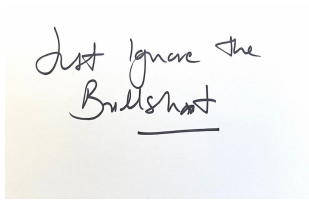 Just Ignore the
Bullshoot